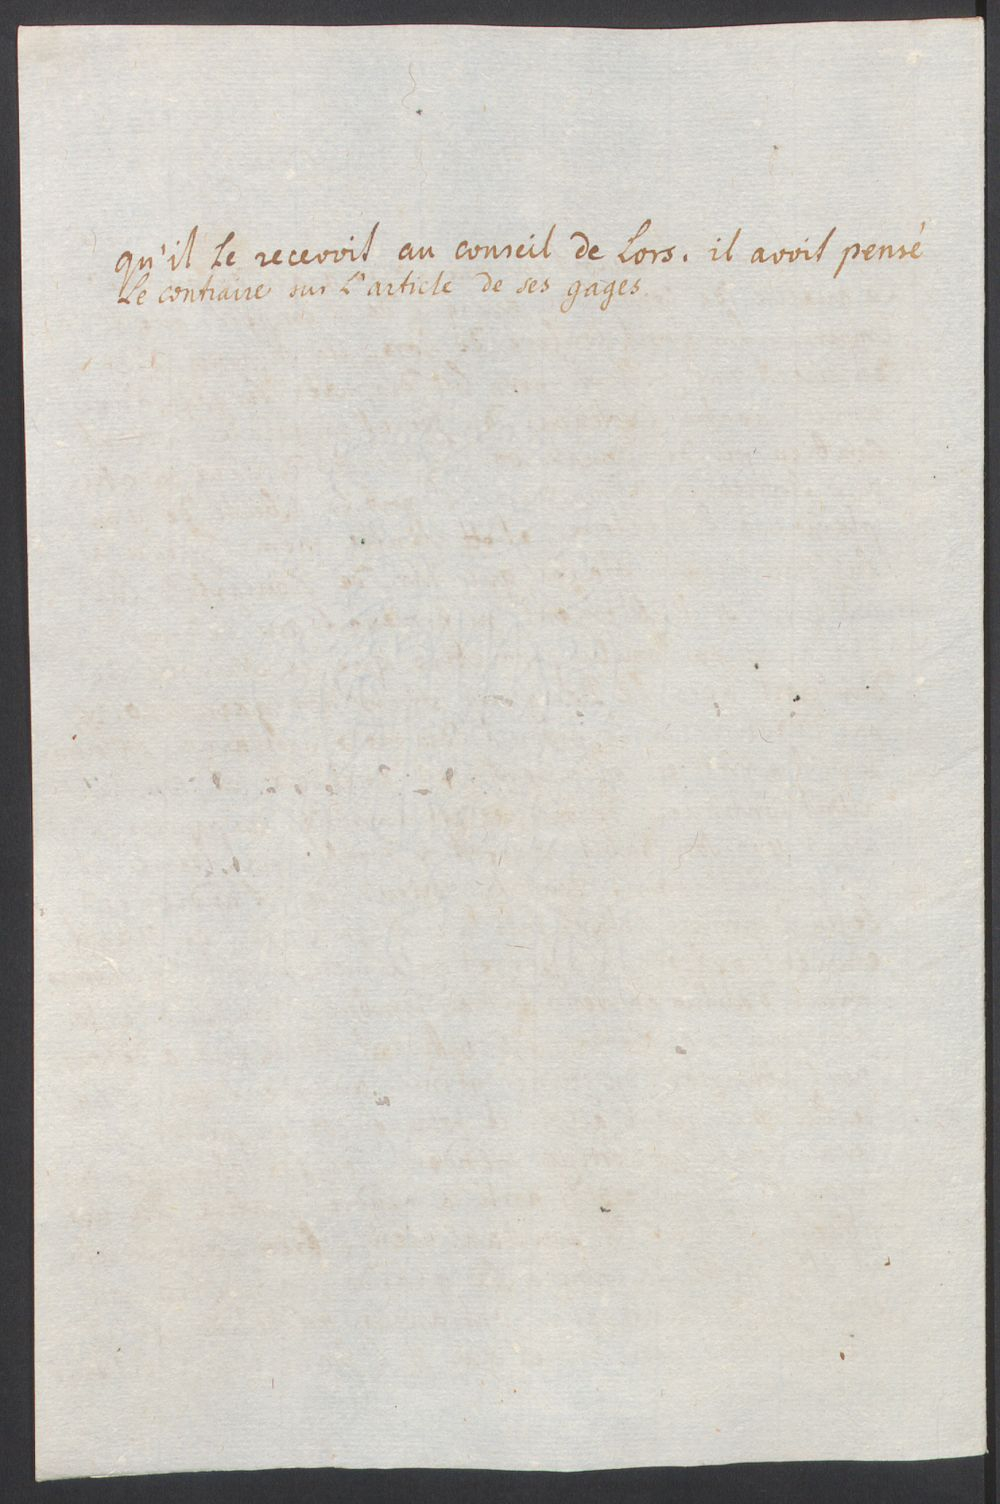 qu'il le recevoit au conseil de Lors. il avoit pensé
Le contraire sur L'article de ses gages